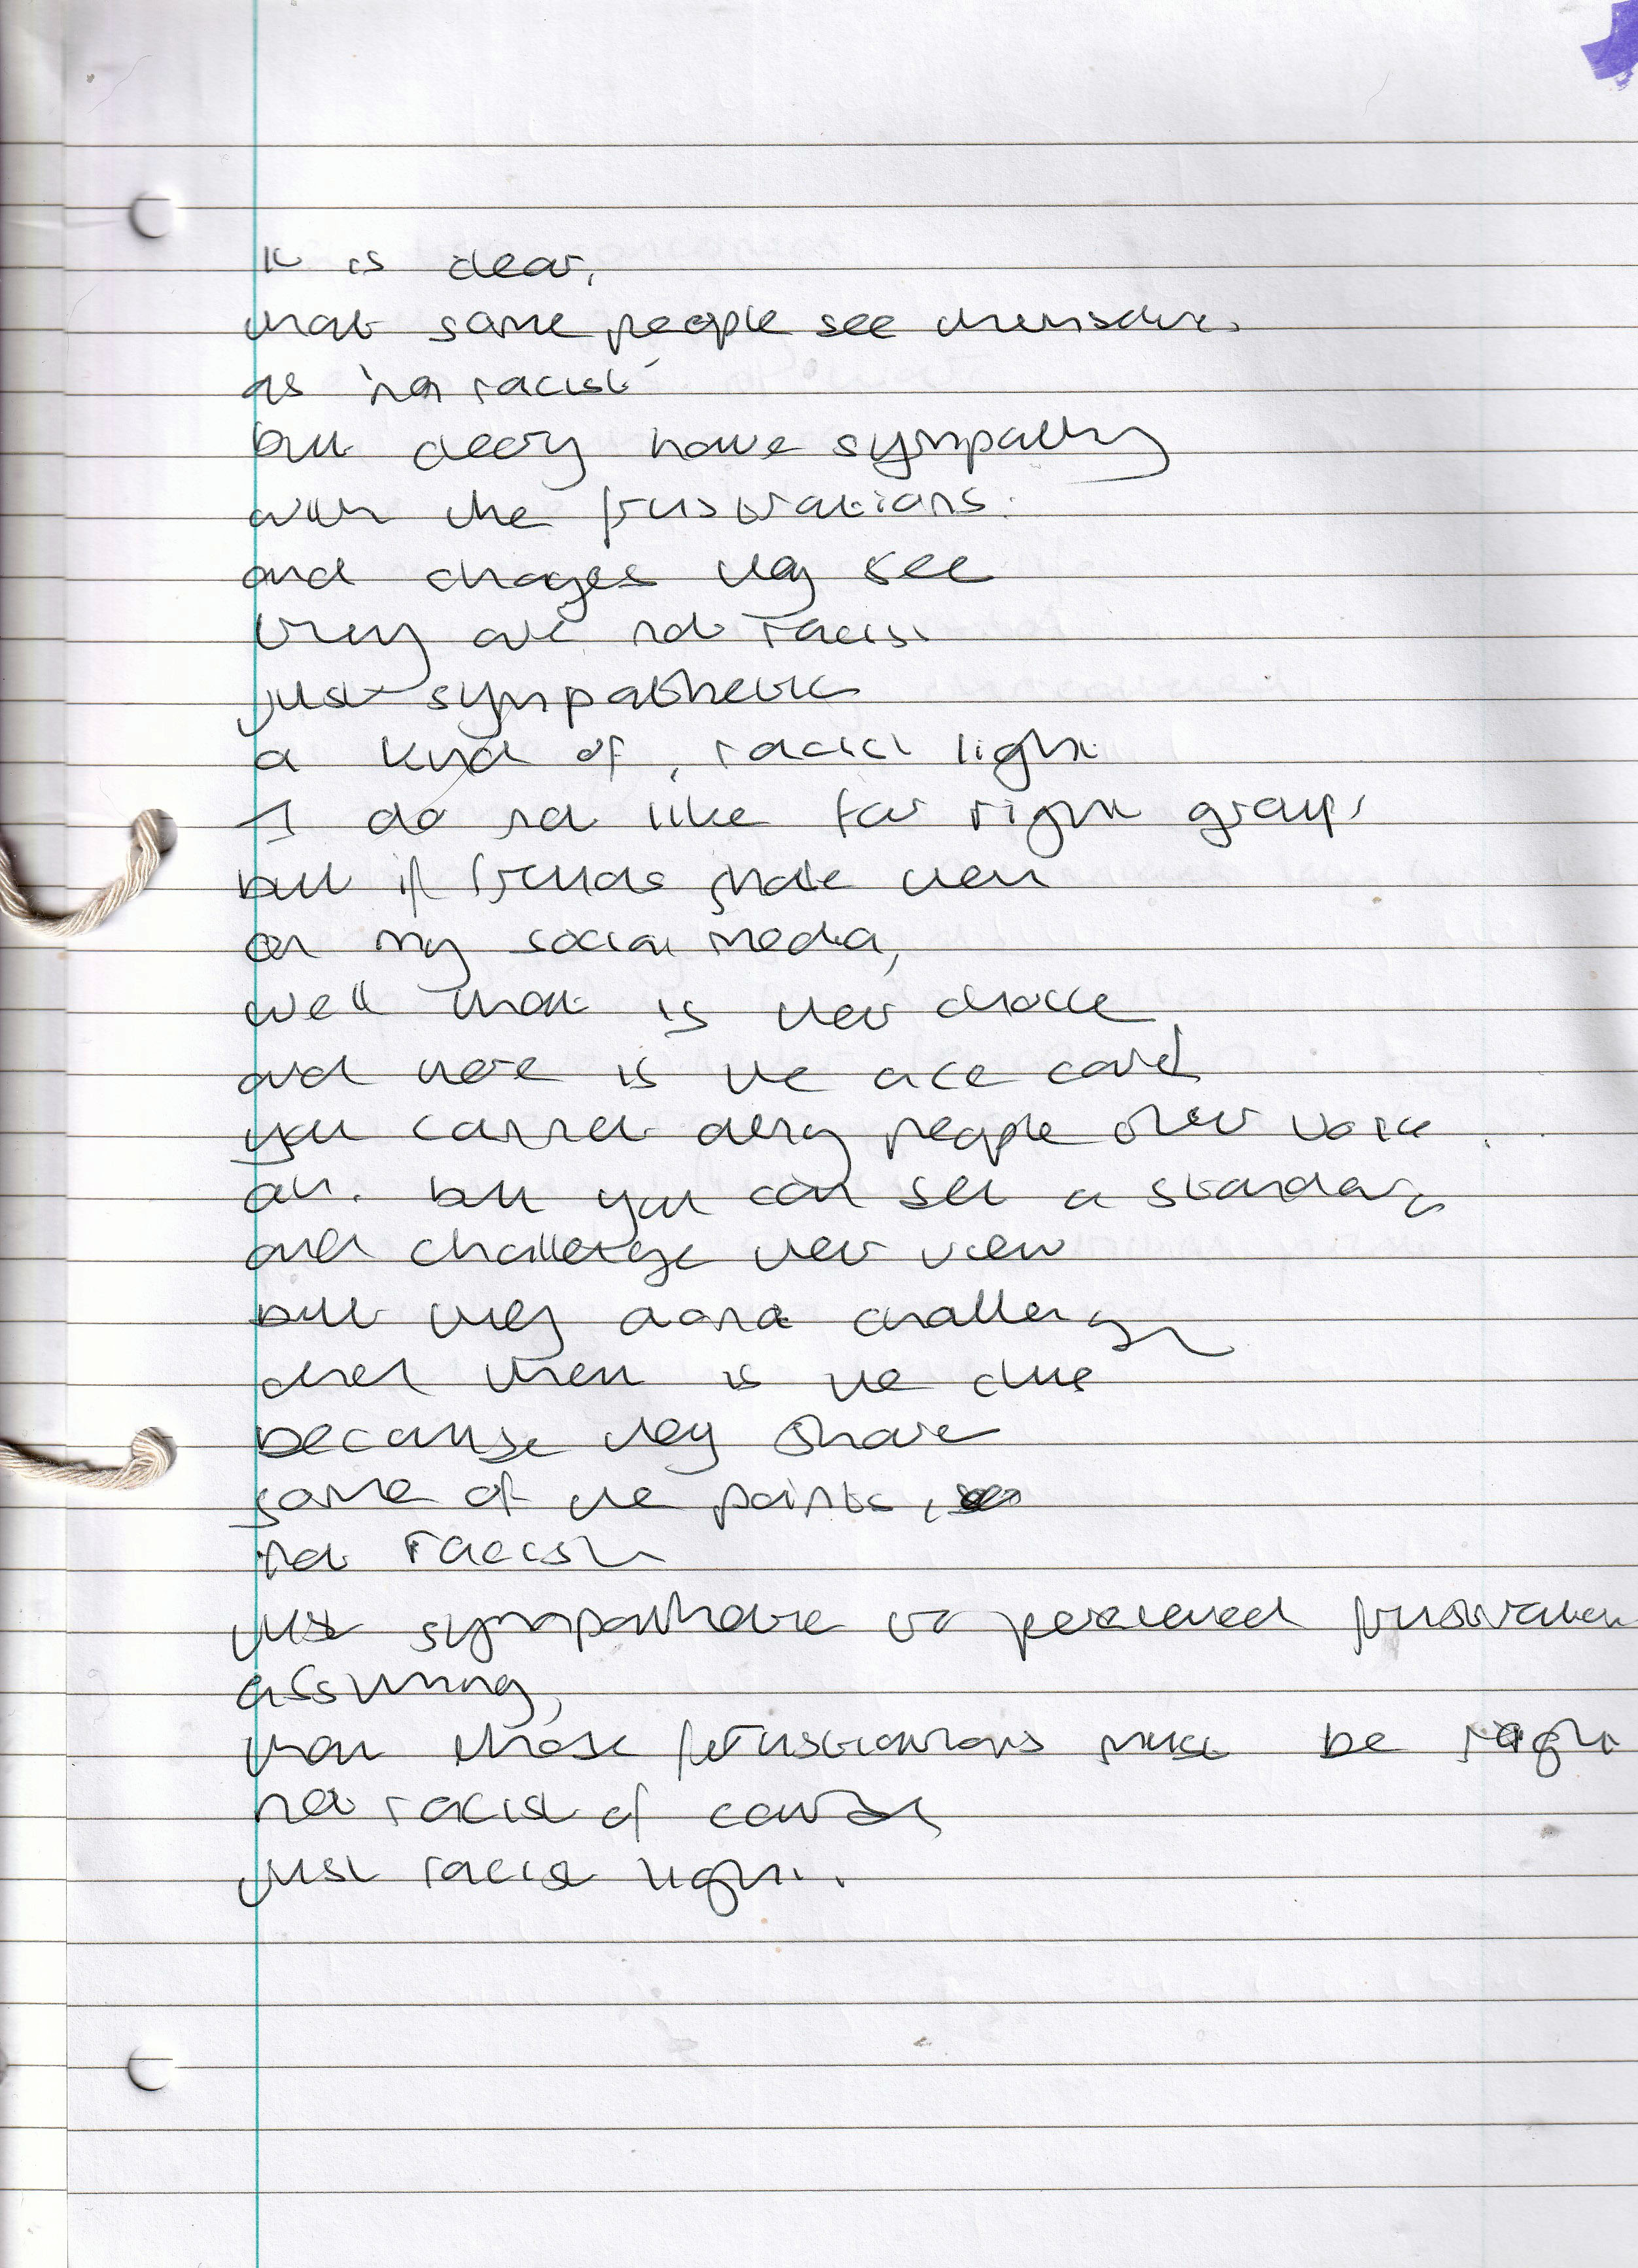 It is clear,
that some people see themselves
as 'not racist'
but deeply have sympathy
with the frustrations.
and changes they see
they are not racist
just sympathetic
a kind of, racist light
I do not like far right groups
but if friends share them
on my social media,
well that is their choice
and here is the ace card
you cannot deny people their voice.
ah. but you can set a standard
and challenge their view
but they dont challenge
and there is the clue
because they share
some of the points,
not racist
just sympathetic to perceived frustration
assuming,
that those frustrations must be right
not racist of course,
just racist light.